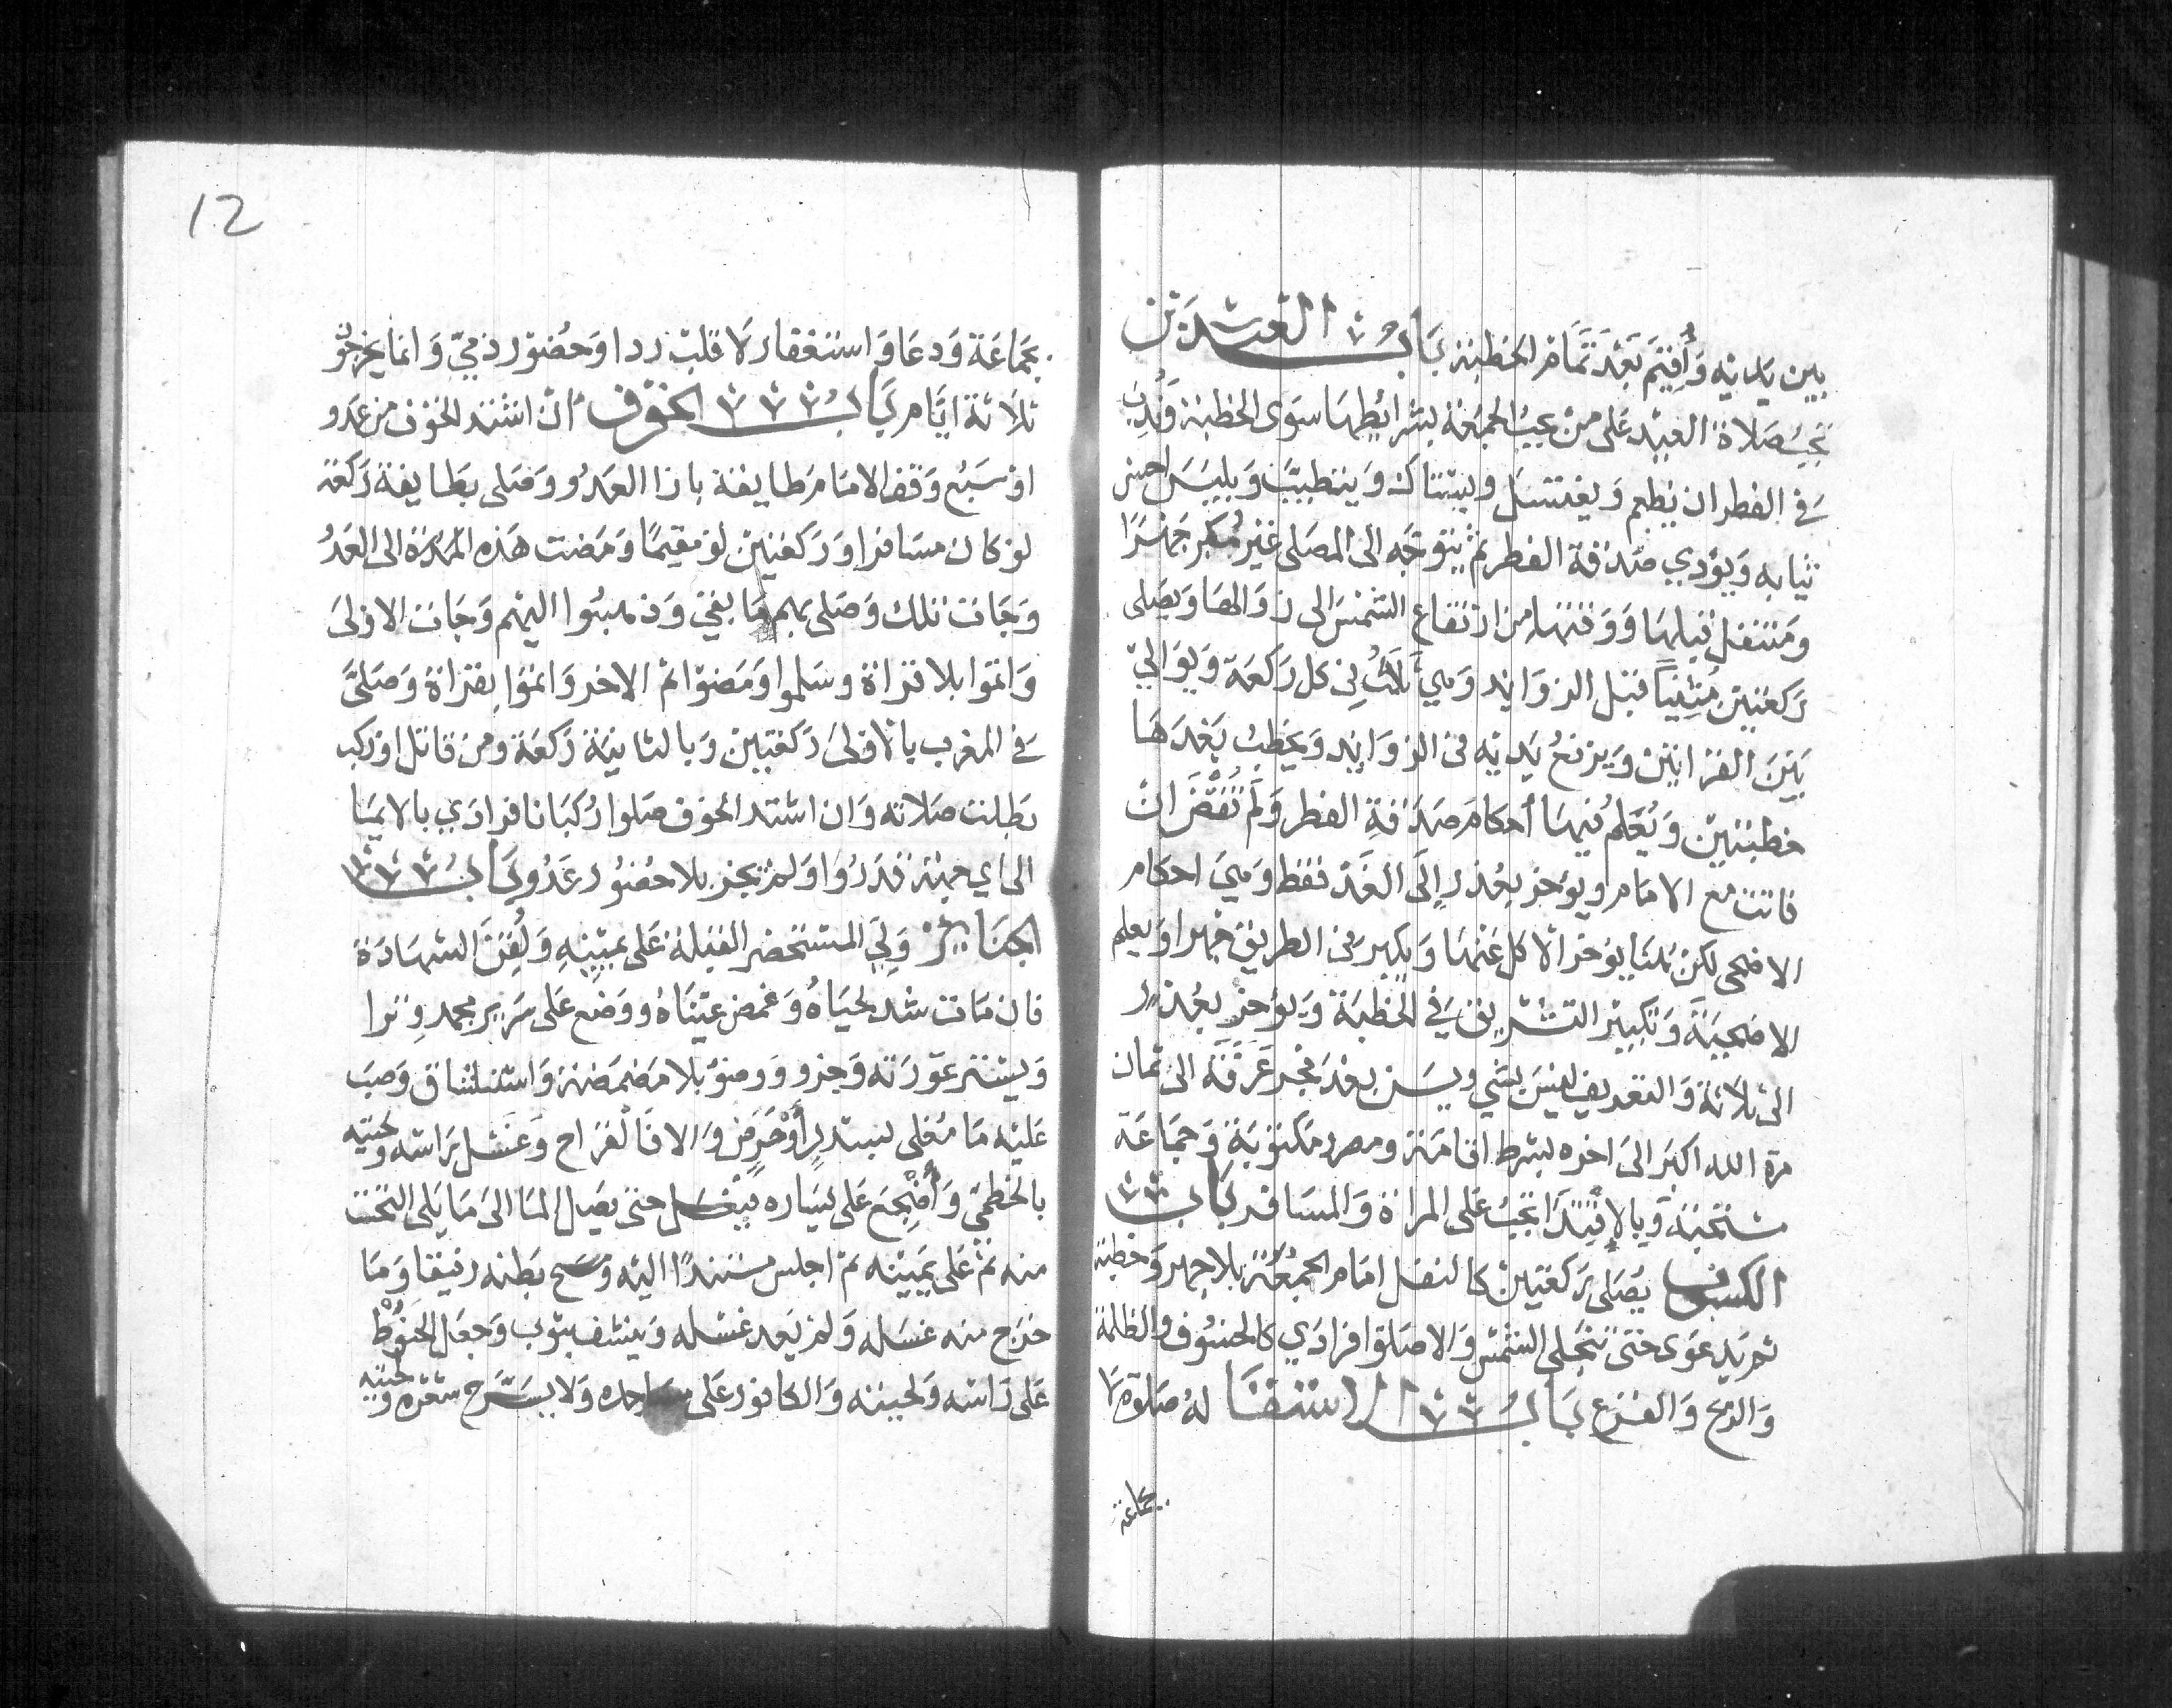 بين يديه وأقيم بعد تمام الخطبة باب العيدين
تجب صلاة العيد على من تجب الجمعة بشرائطها سوى الخطبة وندب
في الفطر ان يطعم ويغتسل ويستاك ويتطيب ويلبس احسن
ثيابه ويؤدي صدقة الفطر ثم يتوجه الى المصلى غير مكبر جهرا
ومتنفل قبلها ووقتها من ارتفاع الشمس الى زوالها ويصلى
ركعتين مثنيا قبل الزوايد وهي ثلاث في كل ركعة ويوالي
بين القرائتين ويرفع يديه في الزوايد ويخطب بعدها
خطبتين ويعلم فيها أحكام صدقة الفطر ولم تقض ان
فاتت مع الامام ويؤخر بعذر إلى الغد فقط وهي احكام
الاضحى لكن هنا يؤخر الاكل عنها ويكبر في الطريق جهرا ويعلم
الاضحية وتكبير التشريق في الخطبة ويؤخر بعذر
الى ثلاثة والتعريف ليس بشي ويسن بعد فجر عرفة الى ثمان
مرة الله اكبر الى اخره بشرط اقامة ومصر ومكتوبة وجماعة
مستحبة وبالاقتدا تجب على المراة والمسافر باب
الكسوف يصلى ركعتين كالنفل امام الجمعة بلا جهر وخطبة
ثم يدعو حتى تنجلى الشمس والا صلوا فرادي كالخسوف والظلمة
والريح والفزع باب الاستسقا له صلوة لا
بجماعة
12
بجماعة ودعا واستغفار لا قلب ردا وحضور ذمي وانما يخرجون
ثلاثة ايام باب الخوف ان اشتد الخوف من عدو
او سبع وقف الامام طايفة بازا العدو وصلى بطايفة ركعة
لو كان مسافرا وركعتين لو مقيما ومضت هذه المرة الى العدو
وجات تلك وصلى بهم ما بقي وذهبوا اليهم وجات الاولى
واتموا بلا قراة وسلموا ومضوا ثم الاخر واتموا بقراة وصلى
في المغرب بالاولى ركعتين وبالثانية ركعة ومن قاتل او ركب
بطلت صلاته وان اشتد الخوف صلوا ركبانا فرادي بالايما
الى اي جهة قدروا ولم يجز بلا حضور عدو باب
الجنايز ولي المستحضر القبلة على يمينه ولقن الشهادة
فان مات شد لحياه وغمض عيناه ووضع على سرير مجمر وترا
ويستر عورته وجرد ووضؤ بلا مضمضة واستنشاق وصب
عليه ما مغلى بسدر أو حرض والا فالقراح وغسل راسه ولحيته
بالخطمي وأضجع على يساره فيغسل حتى يصل الما الى ما يلى التخت
منه ثم على يمينه ثم اجلس مستندا اليه ومسح بطنه رفيقا وما
خرج منه غسله ولم يعد غسله وينشف بثوب وجعل الحنوط
على راسه ولحيته والكافور على مساجده ولا يسرح شعره ولحيته